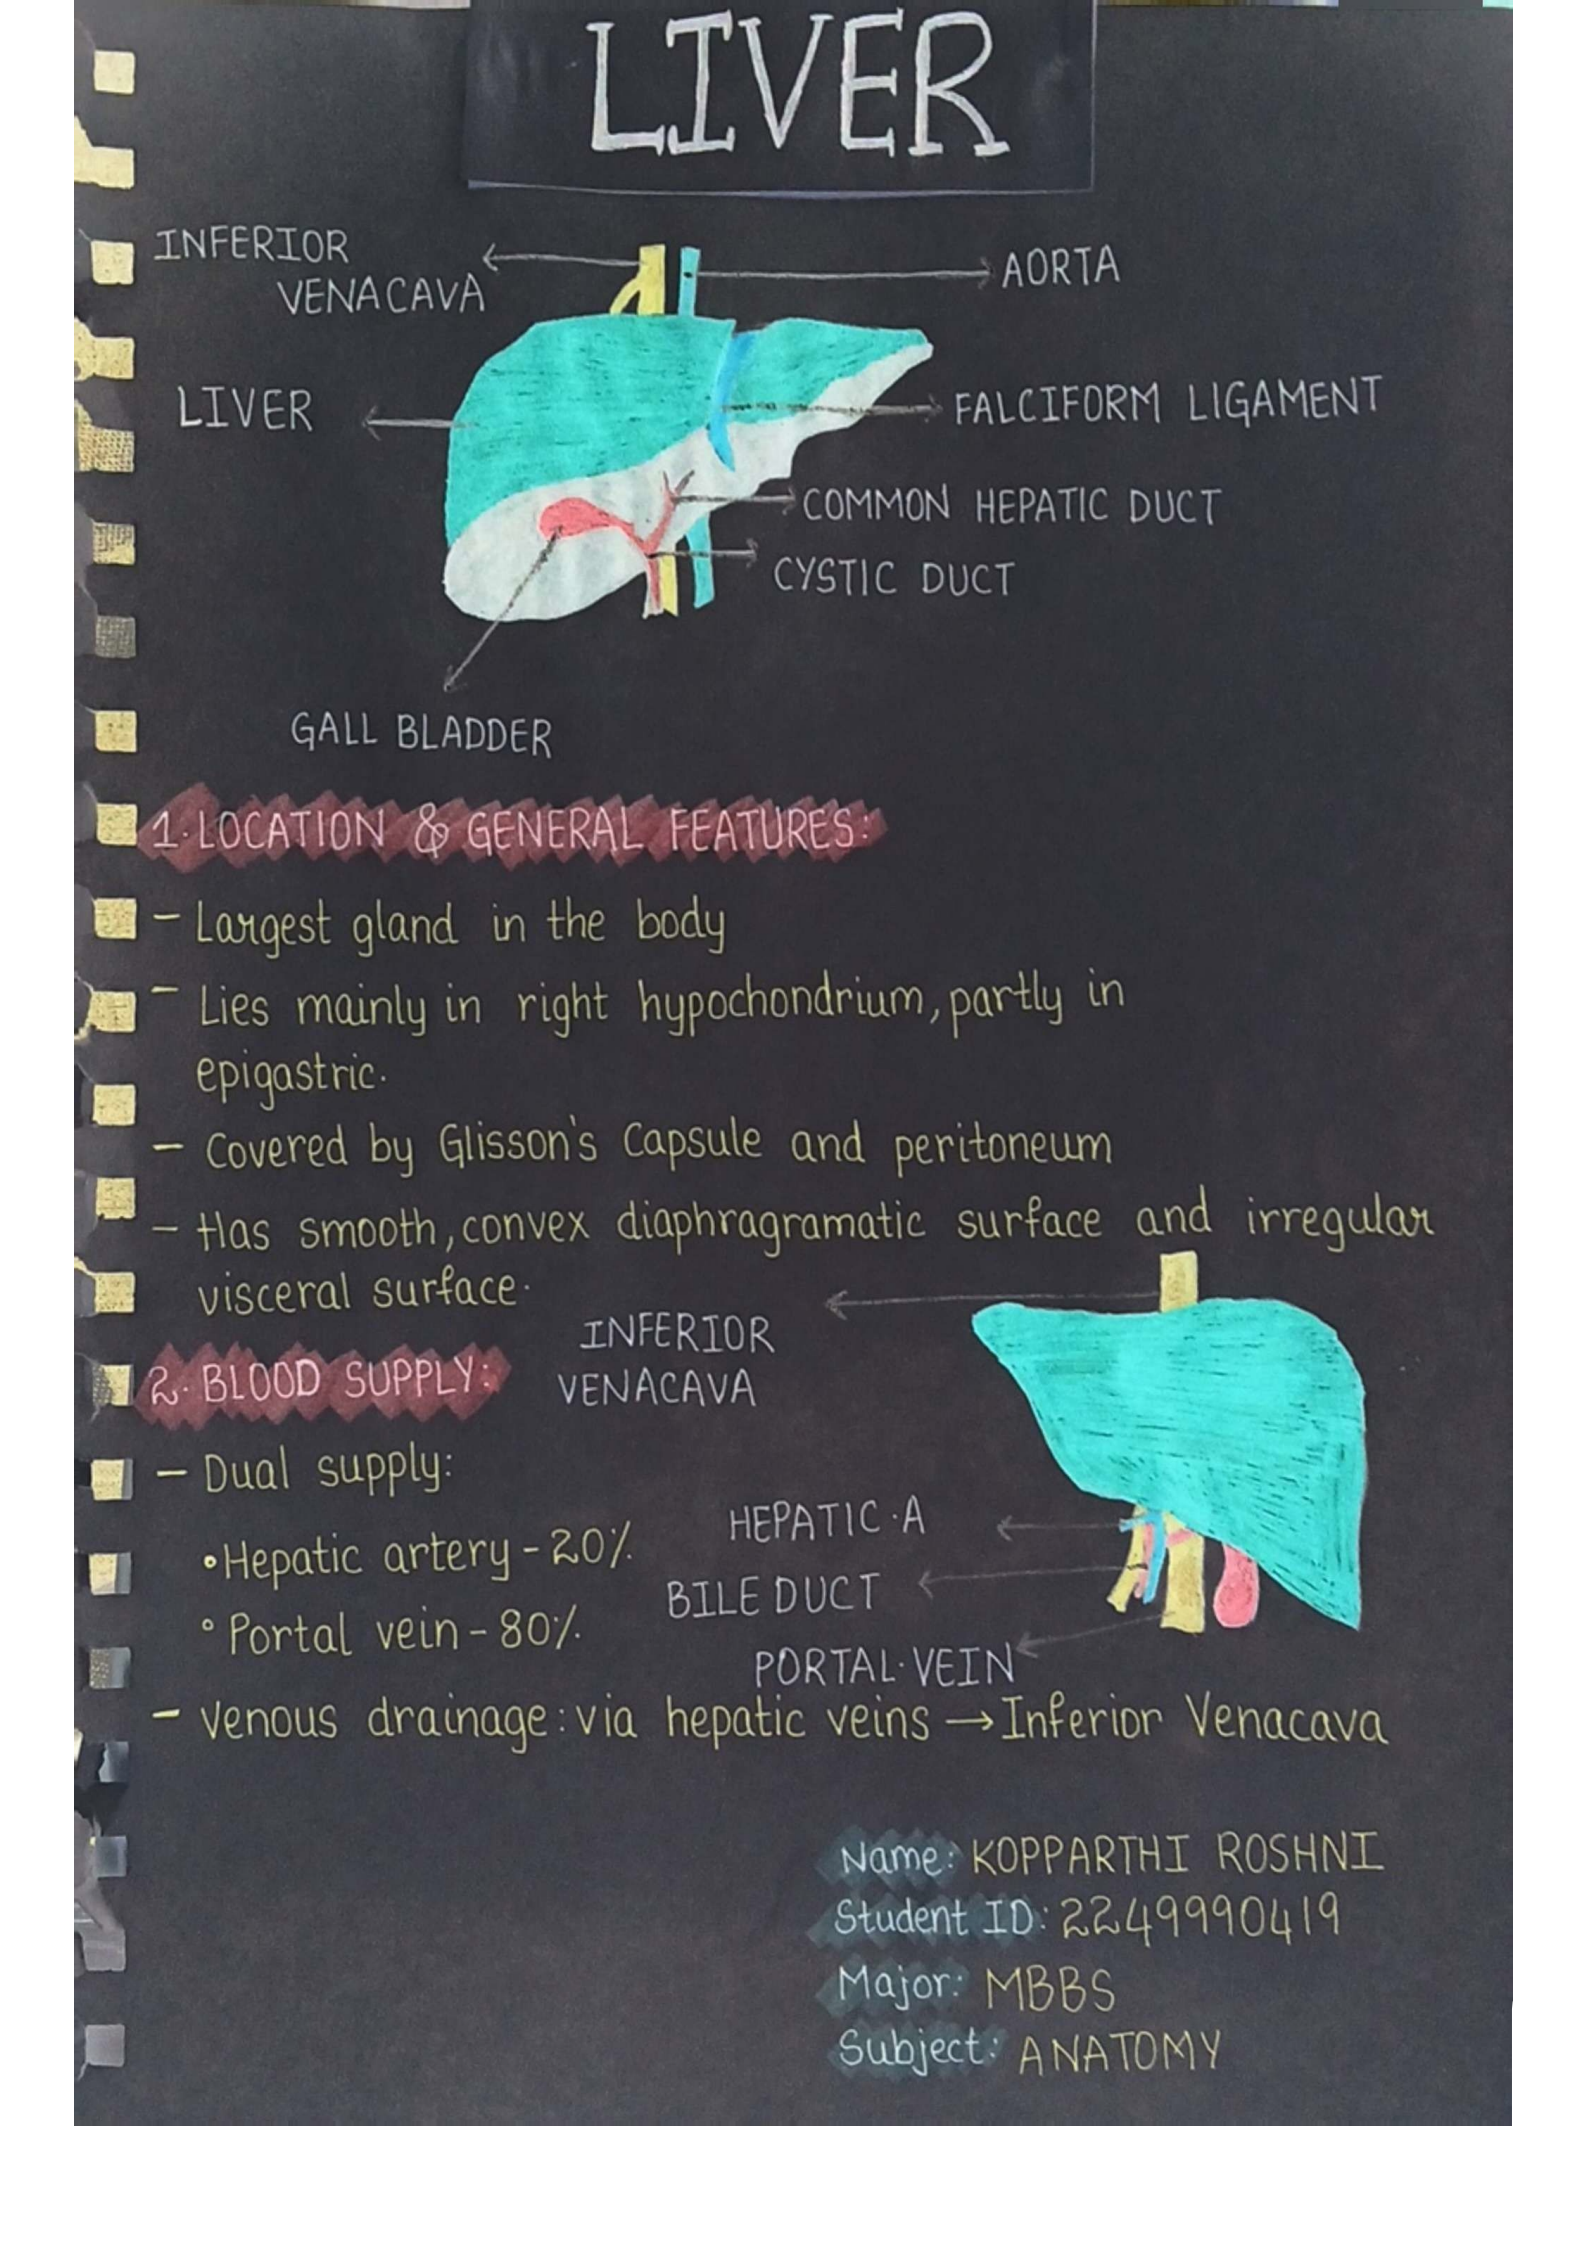 LIVER
INFERIOR
VENACAVA
AORTA
LIVER
FALCIFORM LIGAMENT
COMMON HEPATIC DUCT
CYSTIC DUCT
GALL BLADDER
1. LOCATION & GENERAL FEATURES:
- Largest gland in the body
- Lies mainly in right hypochondrium, partly in
epigastric.
- Covered by Glisson's Capsule and peritoneum
- Has smooth, convex diaphragramatic surface and irregular
visceral surface.
INFERIOR
VENACAVA
2. BLOOD SUPPLY:
- Dual supply:
• Hepatic artery - 20%
° Portal vein - 80%
HEPATIC · A
BILE DUCT
PORTAL · VEIN
- Venous drainage : via hepatic veins → Inferior Venacava
Name: KOPPARTHI ROSHNI
Student ID: 2249990419
Major: MBBS
Subject: ANATOMY